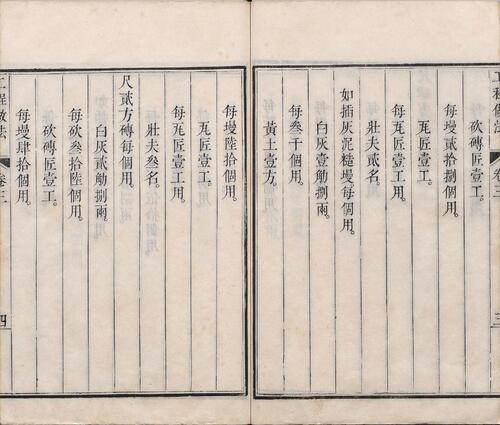 砍磚匠壹工。
每墁貳拾捌個用。
瓦匠壹工。
每瓦匠壹工用。
壯夫貳名。
如插灰泥糙墁每個用。
白灰壹觔捌兩。
每叁千個用。
黃土壹方。
卷三
三
每墁陸拾個用。
瓦匠壹工。
每瓦匠壹工用。
壯夫叁名。
尺貳方磚每個用。
白灰貳觔捌兩。
每砍叁拾陸個用。
砍磚匠壹工。
每墁肆拾個用。
工程做法
卷三
四